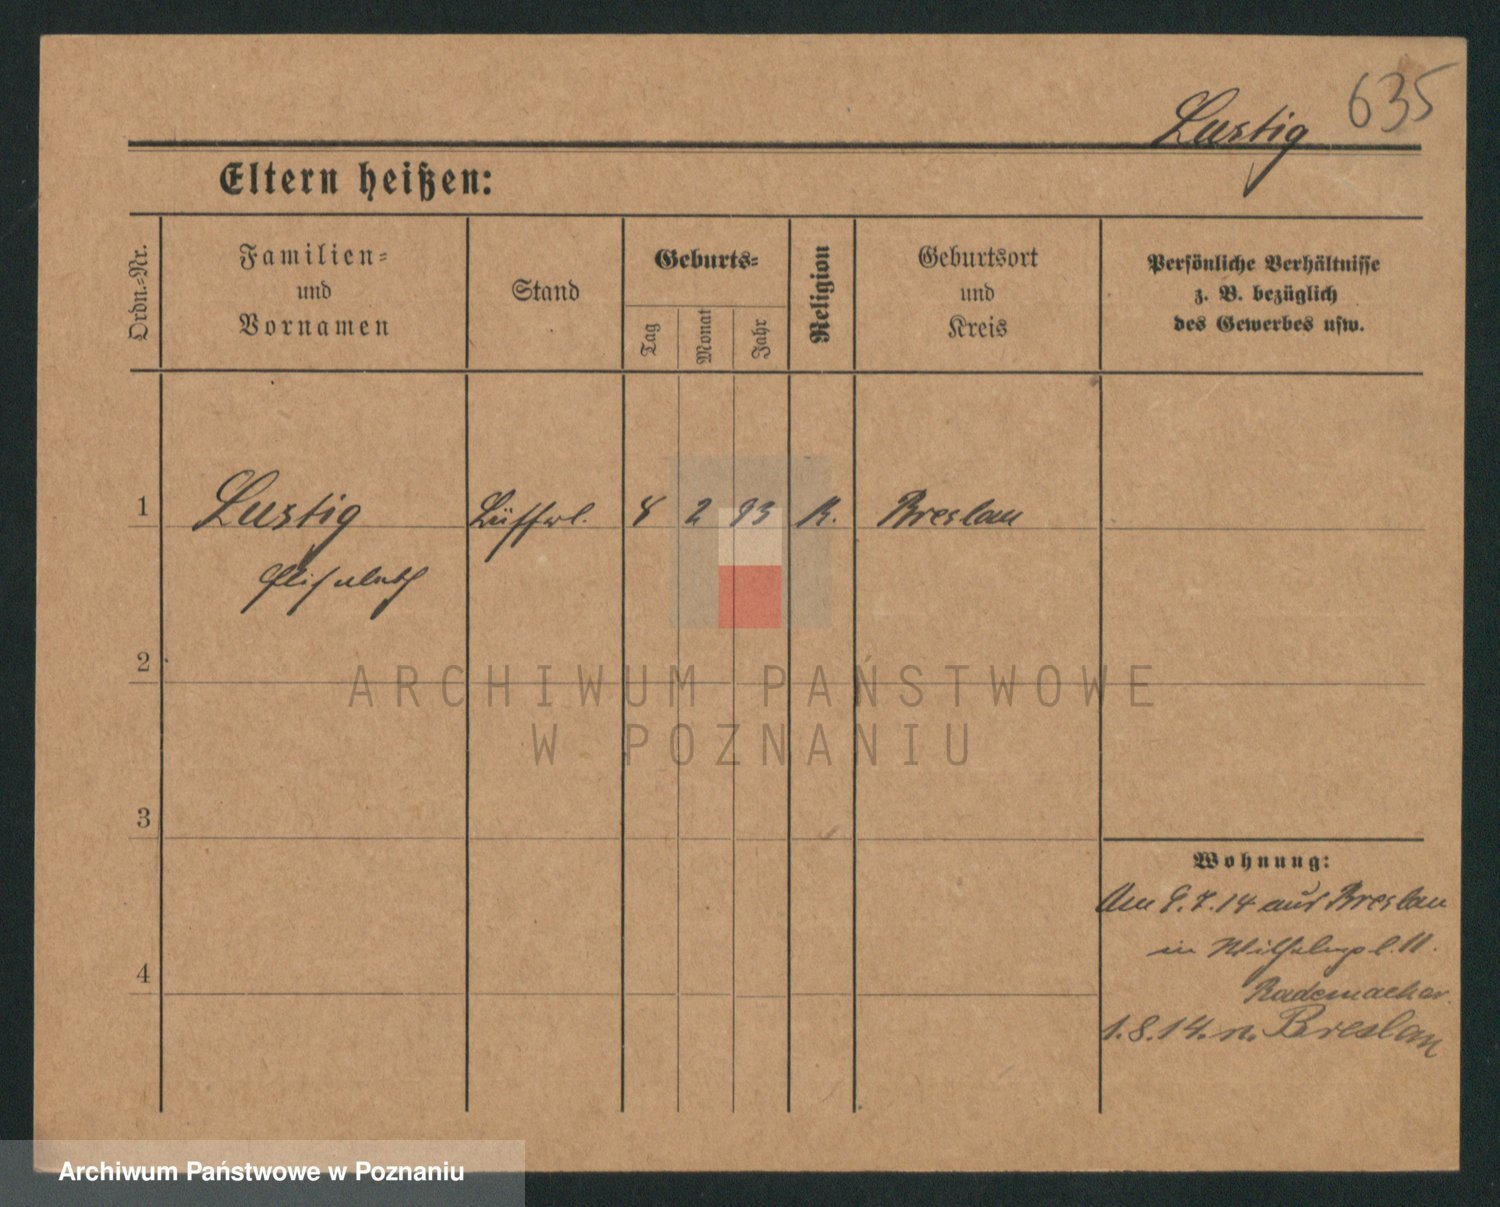 635
Lustig
Eltern heißen:
Ordn.-Nr.
Familien-
und
Vornamen
Stand
Geburts-
Tag
Monat
Jahr
Religion
Geburtsort
und
Kreis
Persönliche Verhältnisse
z. B. bezüglich
des Gewerbes usw.
1 Lustig Büffetfrl. 8 2 93 K. Breslau
Elisabeth
2
ARCHIWUM PAŃSTWOWE
W POZNANIU
3
Wohnung:
Am 9.7.14 aus Breslau
in Wilhelmspl. 11.
Rademacher.
4
1.8.14. n. Breslau
Archiwum Państwowe w Poznaniu